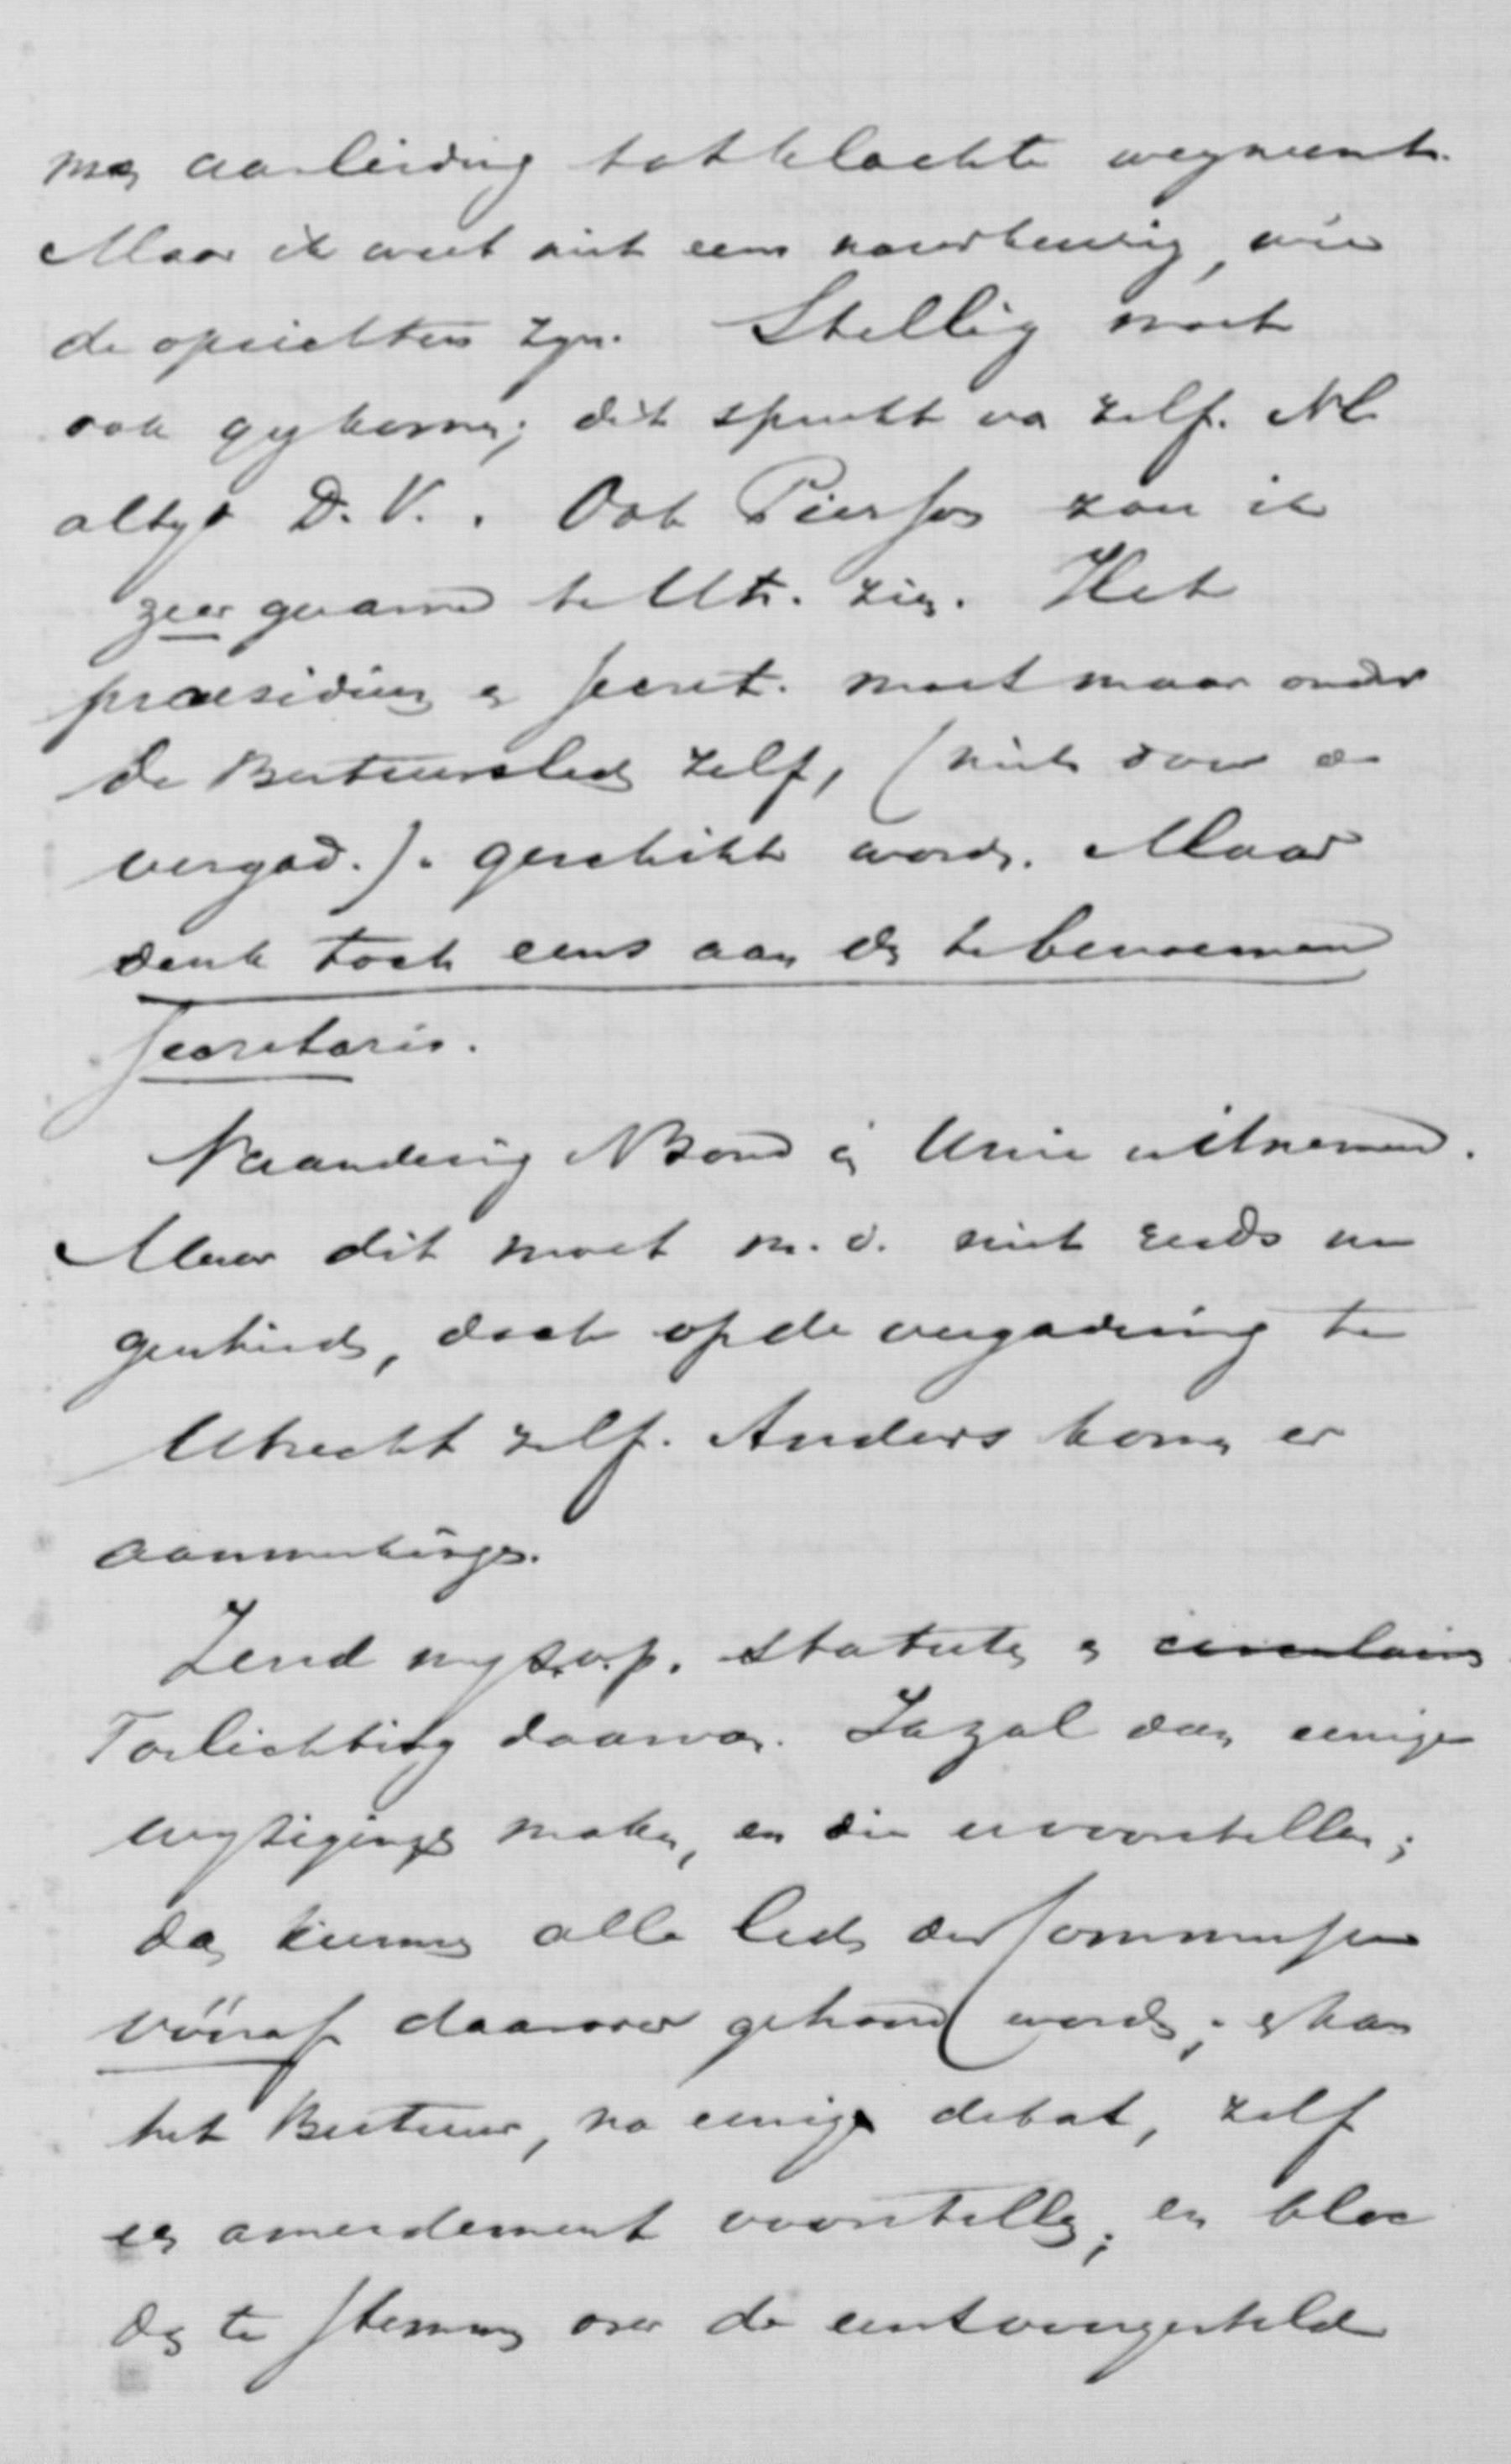 men aanleiding tot klachten wegneemt.
Maar ik weet niet eens nauwkeurig, wie
de oprichters zyn. Stellig moet
ook gy komen; dit spreekt van zelf. Nl.
altyd D. V.. Ook Pierson zou ik
zeer gaarne te Utr. zien. Het
praesidium en secret. moet maar onder
de Bestuursleden zelf, (niet door de
vergad.). geschikt worden. Maar
denk toch eens aan den te benoemen
secretaris.
Verandering NBond in Unie uitnemend.
Maar dit moet m. i. niet reeds nu
geschieden, doch op de vergadering te
Utrecht zelf. Anders komen er
aanmerkingen.
Zend my s.v.p. statuten en circulaire
Toelichting daarvan. Ik zal dan eenige
wyzigingen maken, en die u voorstellen;
dan kunnen alle leden der Commissie
vóóraf daarover gehoord worden; en kan
het Bestuur, na eenige debat, zelf
een amendement voorstellen; en bloc
dan te stemmen over de eerst voorgestelde